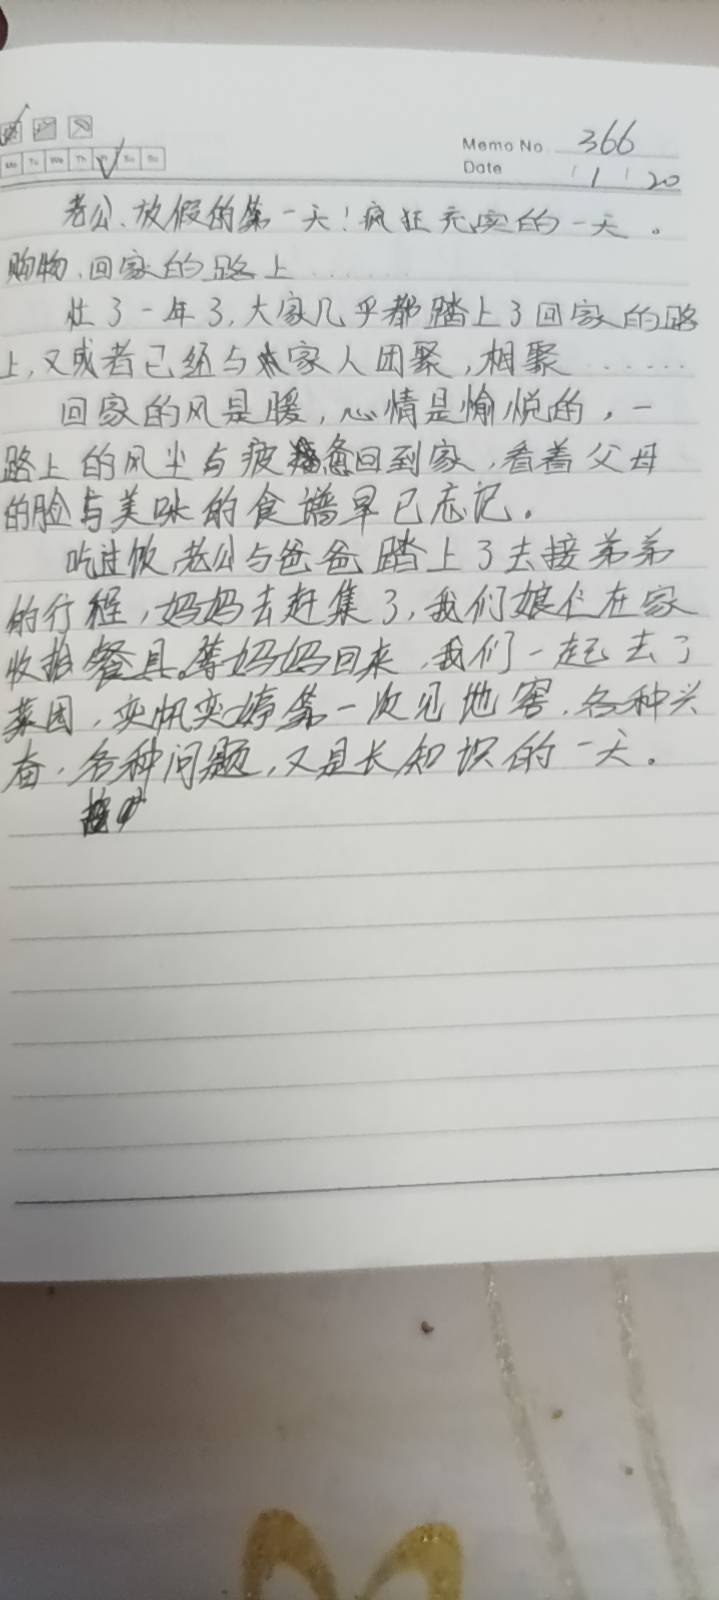 Memo No 366
Mo Tu We Th Su
Date 1 20
老公、放假的第一天！疯狂充实的一天。
购物、回家的路上......
忙了一年了，大家几乎都踏上了回家的路
上，又或者已经与家人团聚，相聚......
回家的风是暖，心情是愉悦的，一
路上的风尘与疲惫回到家，看着父母
的脸与美味的食谱早已忘记。
吃过饭，老公与爸爸踏上了去接弟弟
的行程，妈妈去赶集了，我们娘仨在家
收拾餐具。等妈妈回来，我们一起去了
菜园，奕帆奕婷第一次见地窖，各种兴
奋，各种问题，又是长知识的一天。